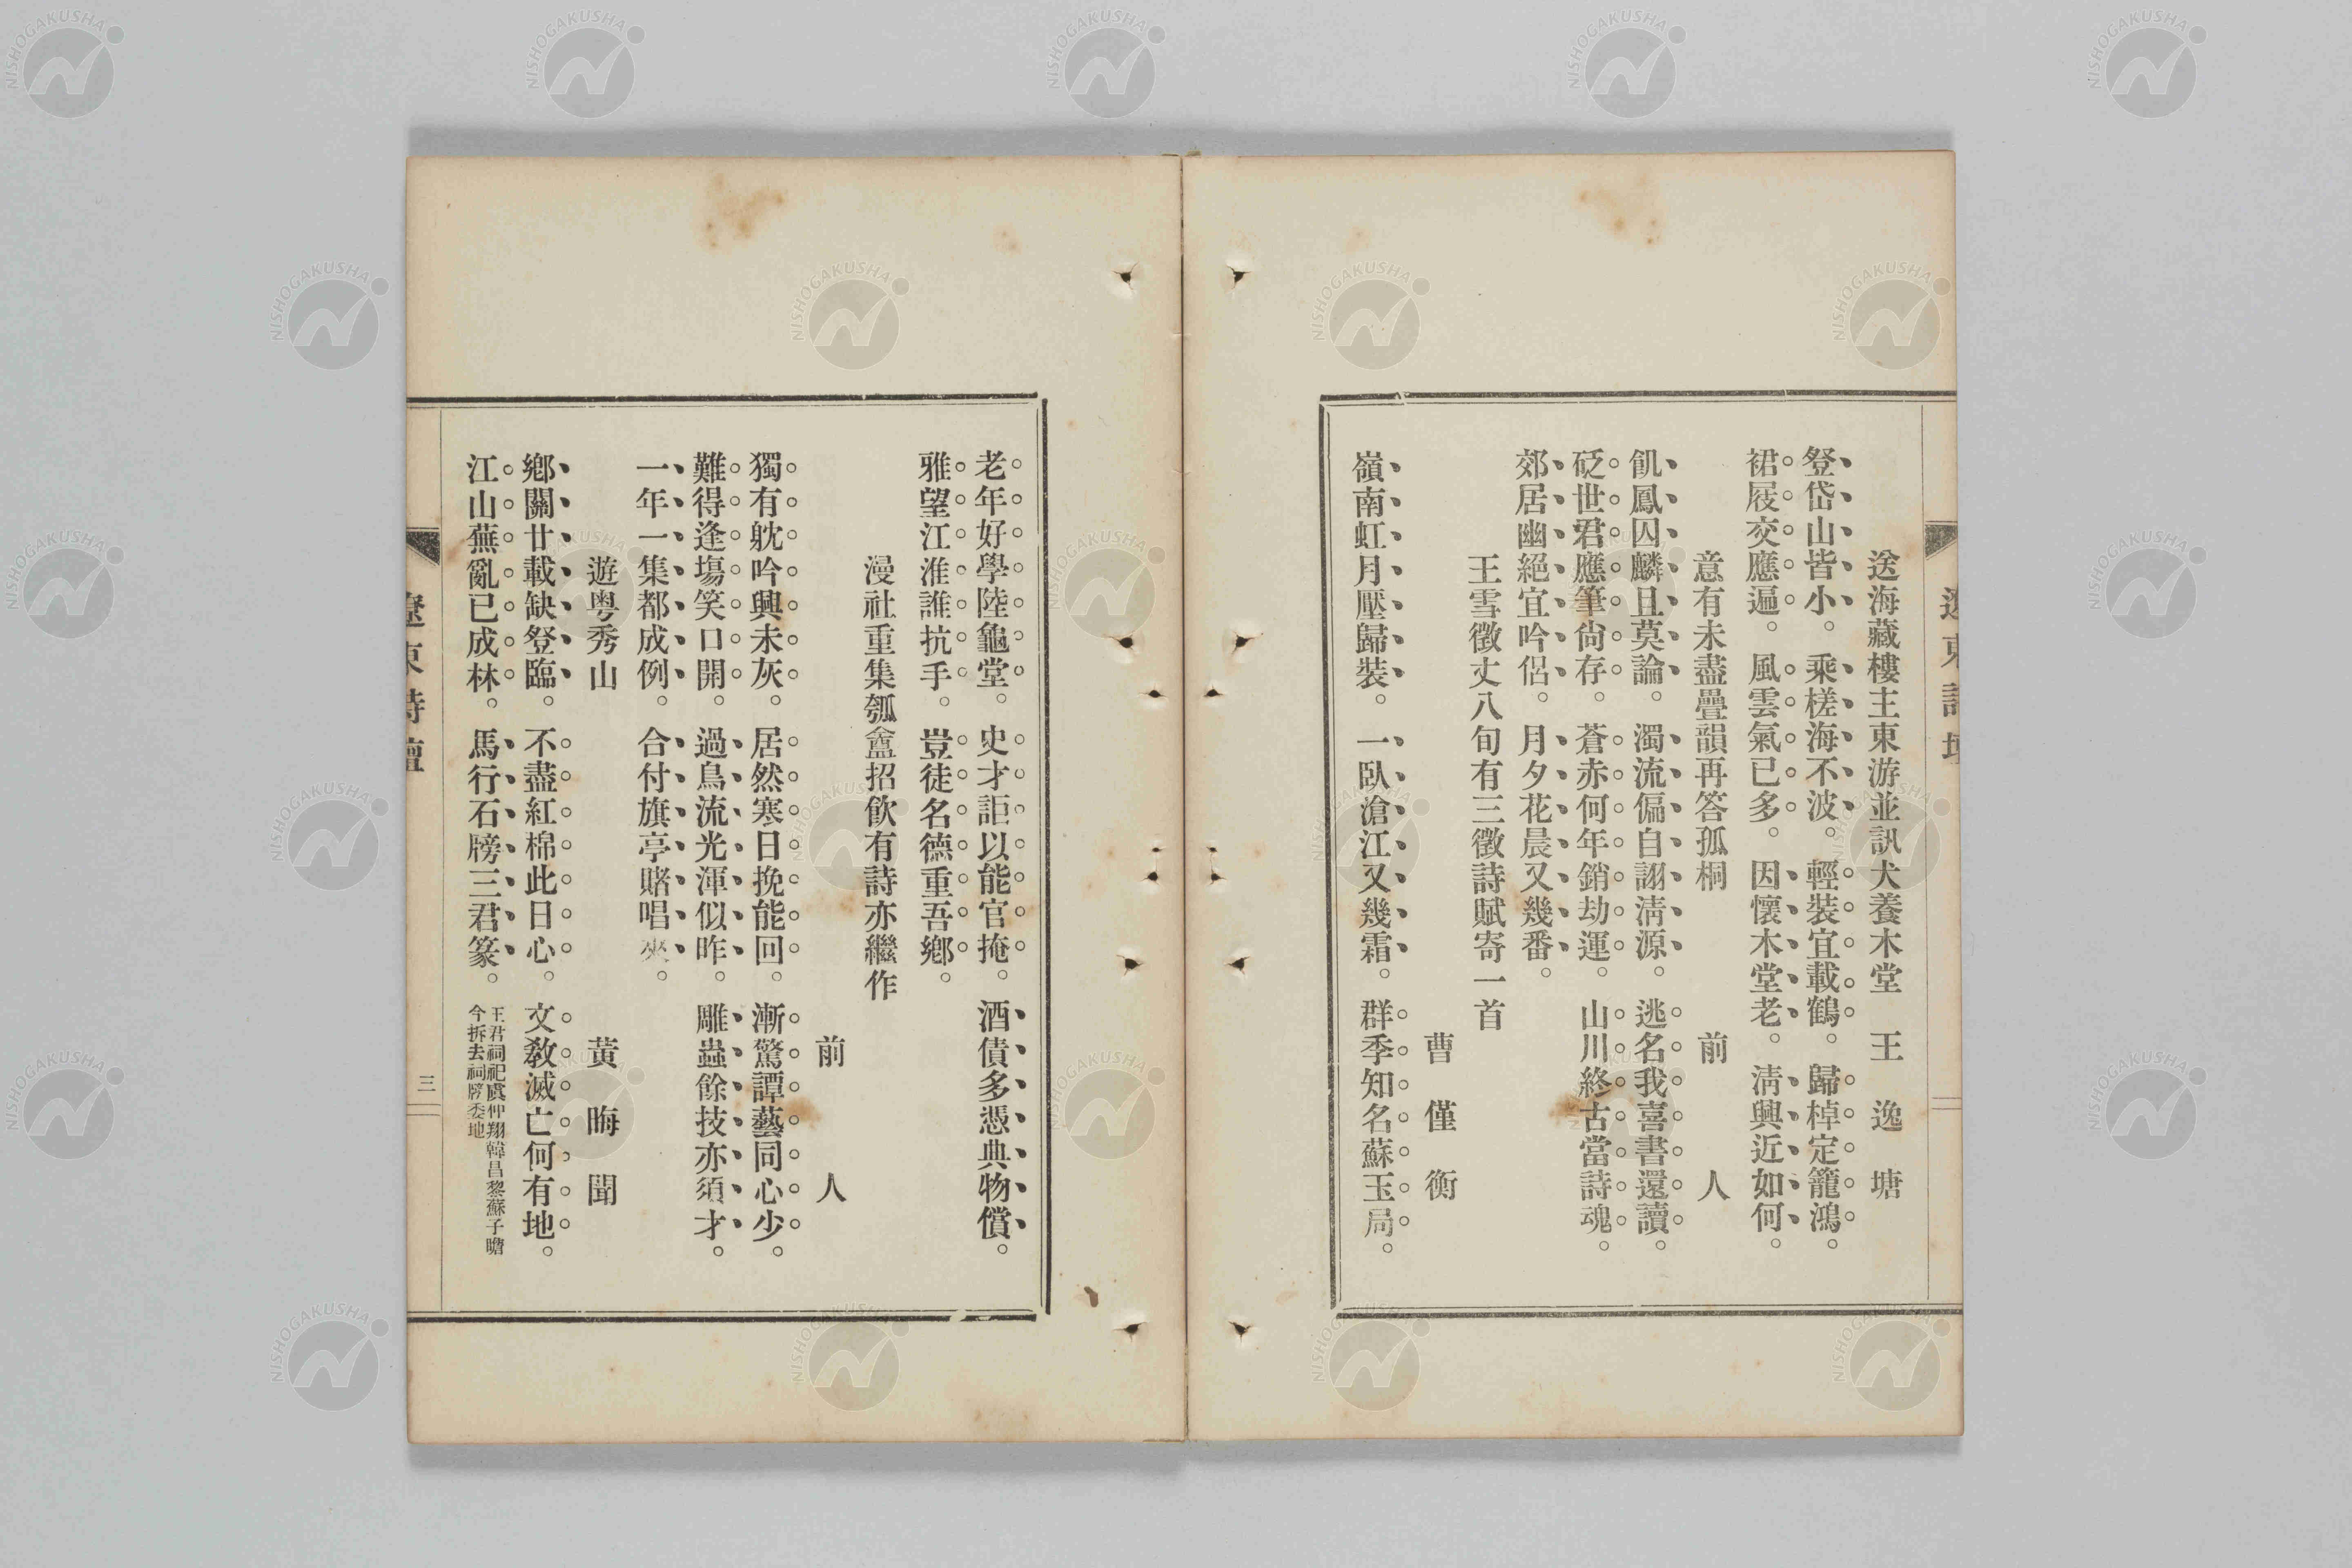 送海藏樓主東游並訊犬養木堂　王逸塘
登岱山皆小。乘槎海不波。輕裝宜載鶴。歸棹定籠鴻。
裙屐交應遍。風雲氣已多。因懷木堂老。淸興近如何。
意有未盡疊韻再答孤桐　前人
飢鳳囚麟且莫論。濁流偏自詡淸源。逃名我喜書還讀。
砭世君應筆尙存。蒼赤何年銷劫運。山川終古當詩魂。
郊居幽絕宜吟侶。月夕花晨又幾番。
王雪徵丈八旬有三徵詩賦寄一首
曹僅衡
嶺南虹月壓歸裝。一臥滄江又幾霜。群季知名蘇玉局。
遼東詩壇
老年好學陸龜堂。史才詎以能官掩。酒債多憑典物償。
雅望江淮誰抗手。豈徒名德重吾鄕。
漫社重集瓠盦招飮有詩亦繼作
前人
獨有躭吟興未灰。居然寒日挽能回。漸驚譚藝同心少。
難得逢塲笑口開。過鳥流光渾似昨。雕蟲餘技亦須才。
一年一集都成例。合付旗亭賭唱來。
遊粤秀山　黃晦聞
鄕關廿載缺登臨。不盡紅棉此日心。文敎滅亡何有地。
江山蕪亂已成林。馬行石牓三君篆。王君祠祀虞仲翔韓昌黎蘇子瞻
今拆去祠牓委地
遼東詩壇
三
NISHOGAKUSHA